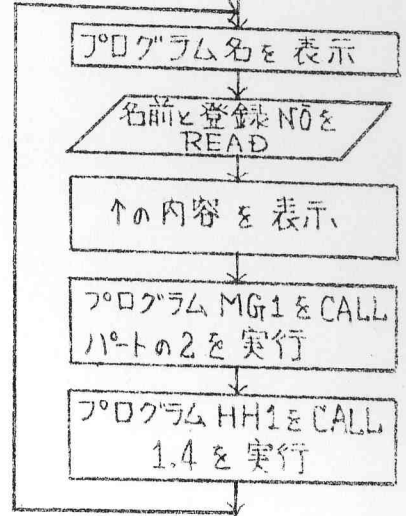 プログラム名を表示
名前と登録NOを
READ
↑の内容を表示、
プログラムMG1をCALL
パートの2を実行
プログラムHH1をCALL
1.4を実行